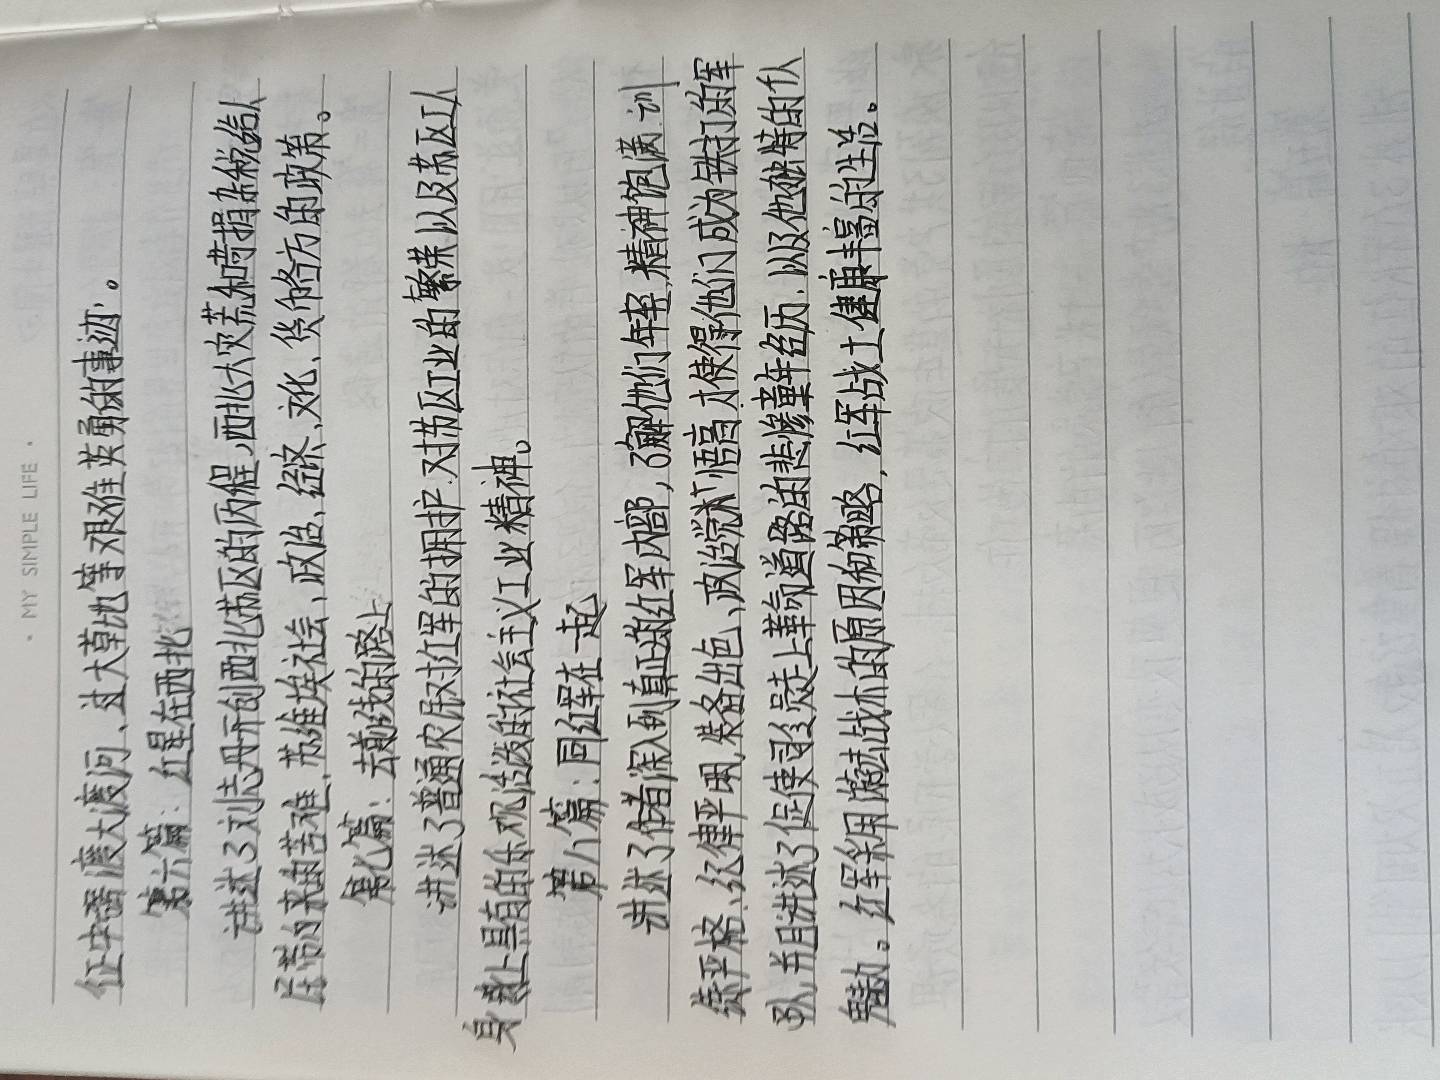 · MY SIMPLE LIFE ·
征中强渡大渡河、过大草地等艰难英勇的事迹。
第六篇：红星在西北
讲述了刘志丹开创西北苏区的历程，西北大灾荒和苛捐杂税给人
民带来的苦难，苏维埃社会、政治、经济、文化、货币各方的政策。
第七篇：去前线的路上
讲述了普通农民对红军的拥护，对苏区工业的繁荣以及苏区工人
身上具有的乐观活泼的社会主义工业精神。
第八篇：同红军在一起
讲述了作者深入到真正的红军内部，了解他们年轻，精神饱满，训
练严格、纪律严明，装备出色、政治觉悟高才使得他们成为铁打的军
队，并且讲述了促使司令员走上革命道路的悲惨童年经历，以及他独特的个人
魅力。红军采用游击战术的原因和策略，红军战士健康丰富的生活。